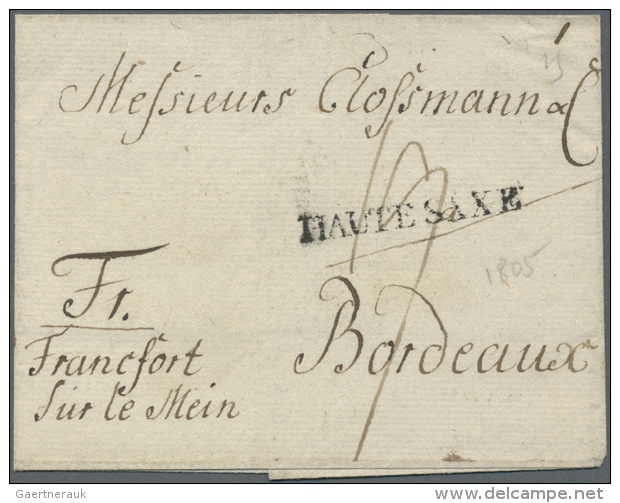 Messieurs Clossmann & C
HAUTE SAXE
1805
Fr.
Bordeaux
Francfort
sur le Mein
Gaertnerauk
www.delcampe.net